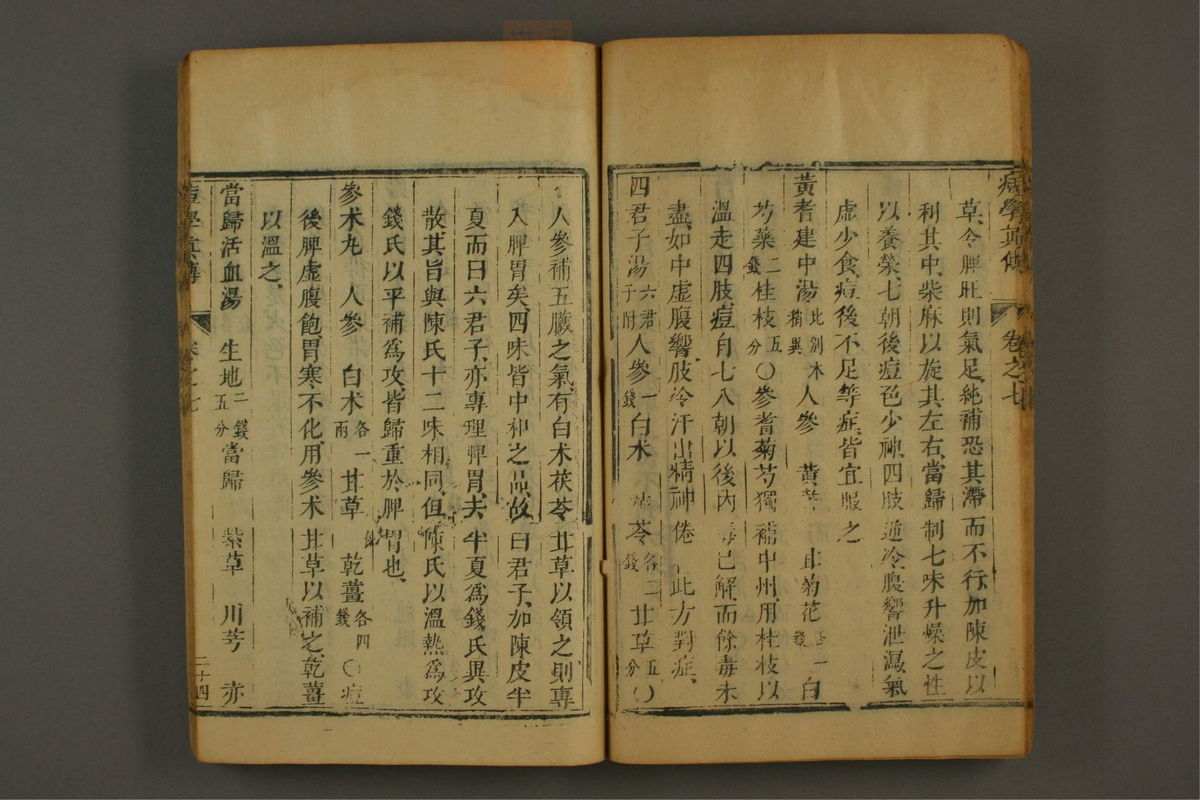 痘學真傳 卷之七
草令脾旺則氣足純補恐其滯而不行加陳皮以
利其中柴麻以旋其左右當歸制七味升燥之性
以養榮七朝後痘色少神四肢逆冷腹響泄瀉氣
虛少食痘後不足等症皆宜服之
黃耆建中湯此別木稍異人參 黃芪 甘菊花各一錢白
芍藥二錢桂枝五分〇參耆菊芍獨補中州用桂枝以
溫走四肢痘自七八朝以後內毒已解而餘毒未
盡如中虛腹響肢冷汗出精神倦 此方對症
四君子湯六君子附人參一錢白朮 茯苓各二錢甘草五分〇
人參補五臟之氣有白朮茯苓甘草以領之則專
入脾胃矣四味皆中和之品故曰君子加陳皮半
夏而曰六君子亦專理脾胃夫半夏為錢氏異攻
散其旨與陳氏十二味相同但陳氏以溫熱為攻
錢氏以平補為攻皆歸重於脾胃也
參朮丸 人參 白朮各一兩甘草 乾薑各四錢〇痘
後脾虛腹飽胃寒不化用參朮甘草以補之乾薑
以溫之
當歸活血湯 生地二錢五分當歸 紫草 川芎 赤
痘學真傳 卷之七 二十四